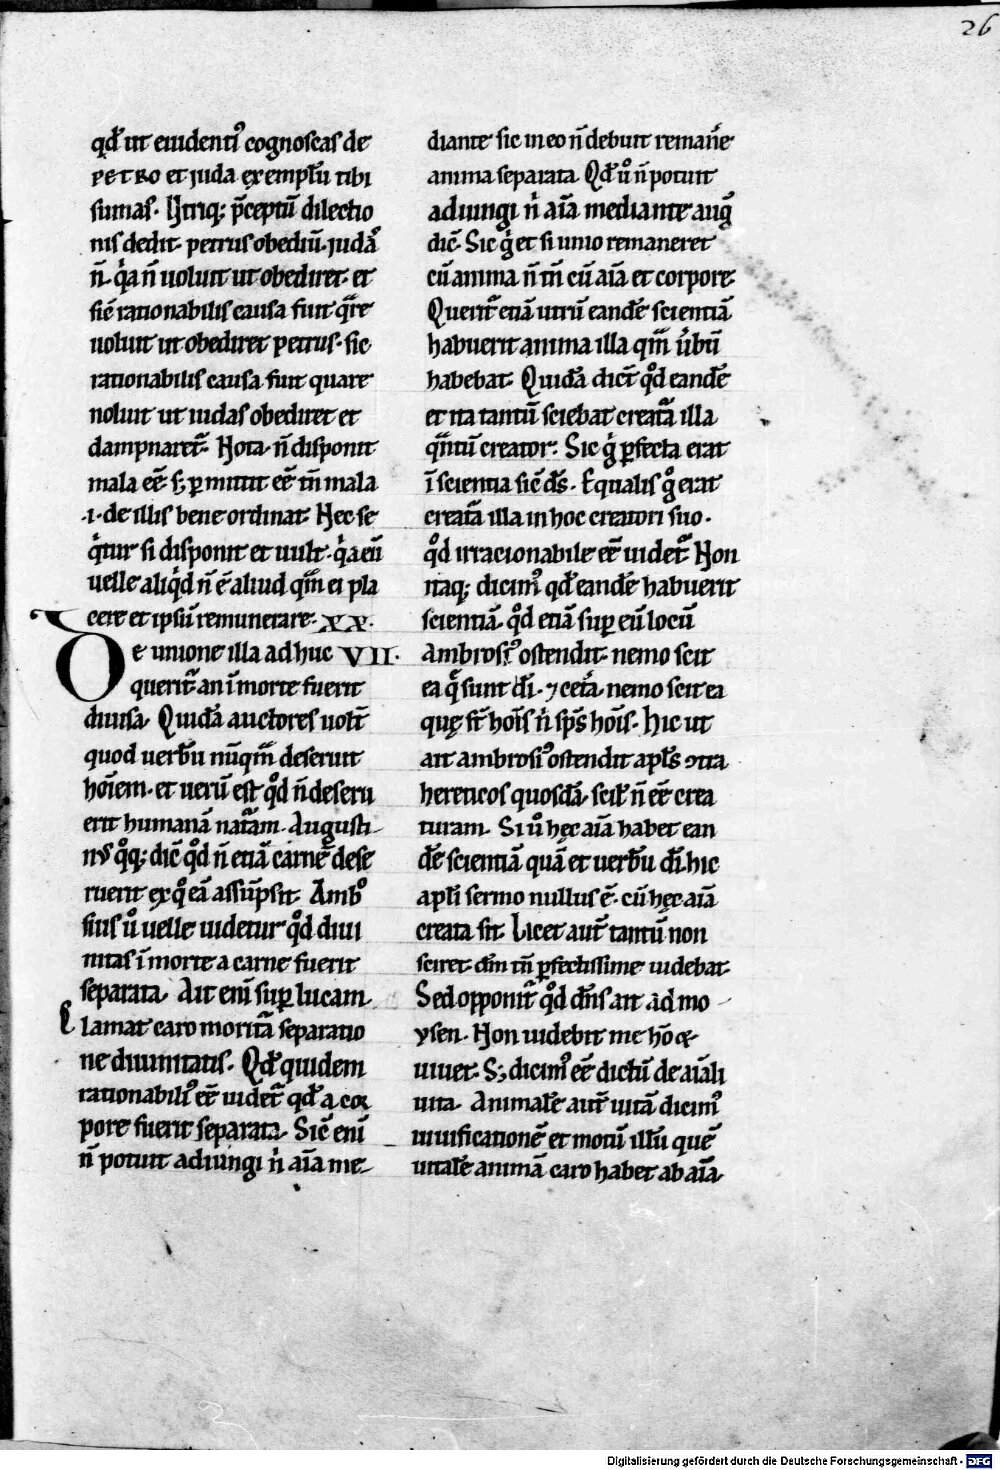 26
qd̄ ut euidenti᾽ cognoscas de
PETRO et juda exemplū tibi
sumas. Utriq; p̄ceptū dilectio
nis dedit. petrus obediuit. judas
n̄. q̇a n̄ uoluit ut obediret. et
sic̄ rationabilis causa fuit q̄re
uoluit ut obediret petrus. sic
rationabilis causa fuit quare
noluit ut iudas obediret et
dampnaret᷑. Nota. n̄ disponit
mala eē. s; ꝑmittit eē tn̄ mala
.i. de illis bene ordinat. Hec se
q̇tur si disponit et uult. q̇a eū
uelle aliq̇d n̄ ē aliud qm̄ ei pla
cere et ipsū remunerare. XX
De unione illa adhuc VII.
querit᷑ an ī morte fuerit
diuisa. Quidā auctores uolt̄
quod uerbū nūqm̄ deseruit
hoīem. et uerū est qd̊ n̄ deseru
erit humanā nat᷑am. Augusti
nꝰ q̊q; dic̄ qd̊ n̄ etiā carnē dese
ruerit ex q̊ eā assūpsit. Ambro
sius ů uelle uidetur qd̊ diui
nitas ī morte a carne fuerit
separata. Ait enī suꝑ lucam.
Clamat caro moritᷓa separatio
ne diuinitatis. Qd̄ quidem
rationabili᾽ eē uidet᷑ qd̄ a cor
pore fuerit separata. Sic̄ enī
n̄ potuit adiungi n̄ aīa me
diante sic in eo n̄ debuit remane᷑
anima separata. Qd̄ ů n̄ potuit
adiungi n̄ aīa mediante aug᾽
dic̄. Sic g̊ et si unio remaneret
cū anima n̄ tn̄ cū aīa et corpore.
Querit᷑ etiā utrū eandē scientiā
habuerit anima illa qm̄ u᷑bū
habebat. Quidā dict̄ qd̊ eandē
et ita tantū sciebat creata illa
qntū creator. Sic g̊ ꝑfecta erat
ī scientia sic̄ ds̄. Equalis g̊ erat
creata illa in hoc creatori suo.
qd̊ irracionabile eē uidet᷑ Non
itaq; dicim᾽ qd̄ eandē habuerit
scientiā. qd̊ etiā suꝑ eū locū
Ambrosi᾽ ostendit. nemo scit
ea q̄ sunt dī. ⁊ cet᷑a. nemo scit ea
quę st̄ hoīs n̄ sps̄ hoīs. Hic ut
ait ambrosi᾽ ostendit apl̄s ꝯtra
hereticos quosdā. scil̄ n̄ eē crea
turam. Si ů hęc aīa habet ean
dē scientiā quā et uerbū dī. hic
apl̄i sermo nullus ē. cū hęc aīa
creata sit. Licet aut̄ tantū non
sciret. dm̄ tn̄ ꝑfectissime uidebat.
Sed opponit᷑ qd̊ dn̄s ait ad mo
ysen. Non uidebit me hō &
uiuet. S; dicim᾽ eē dictū de aīali
uita. Animalē aut̄ uitā dicim᾽
uiuificationē et motū illū quē
uitalē animā caro habet ab aīa.
Digitalisierung gefördert durch die Deutsche Forschungsgemeinschaft - DFG